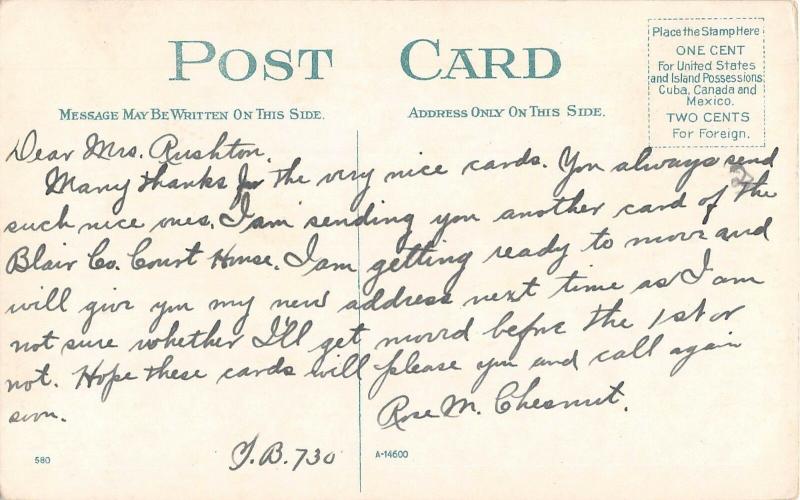 POST CARD
Place the Stamp Here
ONE CENT
For United States
and Island Possessions
Cuba, Canada and
Mexico.
TWO CENTS
For Foreign.
MESSAGE MAY BE WRITTEN ON THIS SIDE.
ADDRESS ONLY ON THIS SIDE.
Dear Mrs. Rushton,
Many thanks for the very nice cards. You always send
such nice ones. I am sending you another card of the
Blair Co. Court House. I am getting ready to move and
will give you my new address next time as I am
not sure whether I'll get moved before the 1st or
not. Hope these cards will please you and call again
soon.
Rose M. Chesnut.
T.B. 730
580
A-14600